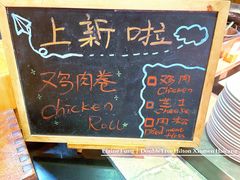 上新啦
鸡肉卷
Chicken
Roll
鸡肉
Chicken
芝士
Cheese
肉松
Elaine Fung | DoubleTree Hilton Xiamen Haicang